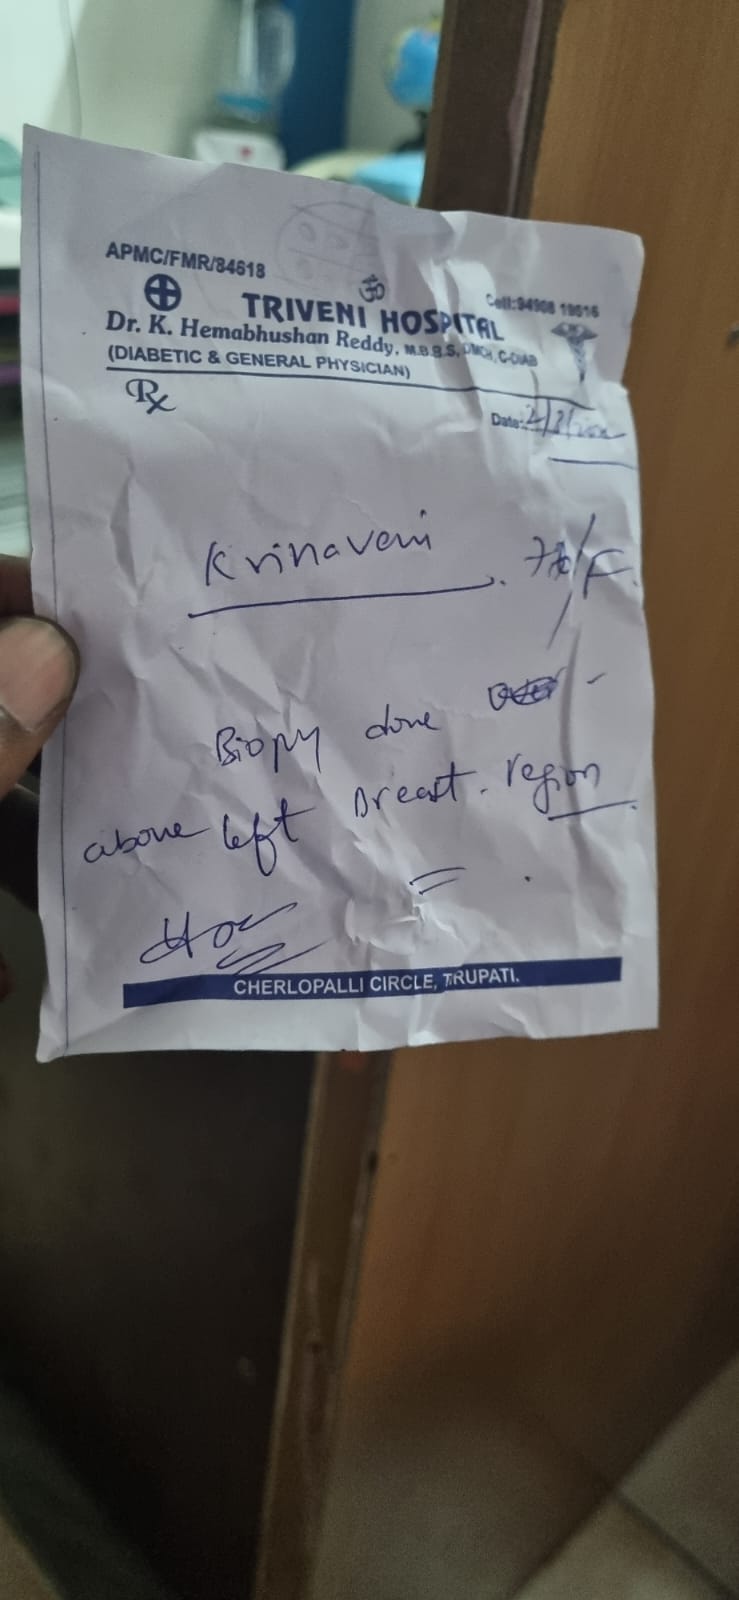 APMC/FMR/84618
ॐ
TRIVENI HOSPITAL
Dr. K. Hemabhushan Reddy, M.B.B.S,
(DIABETIC & GENERAL PHYSICIAN)
Rx
Date:
Krinaveni
/F.
Biopsy done
above left breast region
CHERLOPALLI CIRCLE, TIRUPATI.